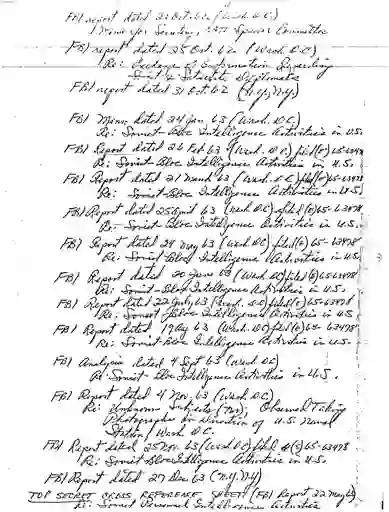 FBI report dated 21 Oct 62 (Wash. D.C.)
FBI report dated 25 Oct 62 (Wash D.C.)
Re: Exchange of Information Regarding
Soviet & Satellite Diplomats
FBI report dated 31 Oct 62 (N.Y. N.Y.)
FBI Memo dated 24 Jan 63 (Wash. DC)
Re: Soviet-Bloc Intelligence Activities in U.S.
FBI Report dated 26 Feb 63 (Wash. DC) filed (S) 65-63498
Re: Soviet-Bloc Intelligence Activities in U.S.
FBI Report dated 21 March 63 (Wash. DC) filed (S) 65-63498
Re: Soviet-Bloc Intelligence Activities in U.S.
FBI Report dated 25 April 63 (Wash DC) filed (S) 65-63498
Re: Soviet Bloc Intelligence Activities in U.S.
FBI Report dated 24 May 63 (Wash DC) filed (S) 65-63498
Re: Soviet Bloc Intelligence Activities in U.S.
FBI Report dated 20 June 63 (Wash DC) filed (S) 65-63498
Re: Soviet-Bloc Intelligence Activities in U.S.
FBI Report dated 22 July 63 (Wash. DC) filed (S) 65-63498
Re: Soviet Bloc Intelligence Activities in U.S.
FBI Report dated 19 Aug 63 (Wash. DC) filed (S) 65-63498
Re: Soviet Bloc Intelligence Activities in U.S.
FBI Analysis dated 4 Sept 63 (Wash DC)
Re: Soviet-Bloc Intelligence Activities in U.S.
FBI Report dated 4 Nov 63 (Wash DC)
Re: Unknown Subjects (Two), Observed Taking
Photographs in Direction of U.S. Naval
Station, Wash DC.
FBI Report dated 25 Nov 63 (Wash DC) filed (S) 65-63498
Re: Soviet Bloc Intelligence Activities in U.S.
FBI Report dated 27 Dec 63 (N.Y. N.Y)
TOP SECRET CROSS REFERENCE SHEET (FBI Report 22 May
Re: Soviet Personnel Intelligence Activities